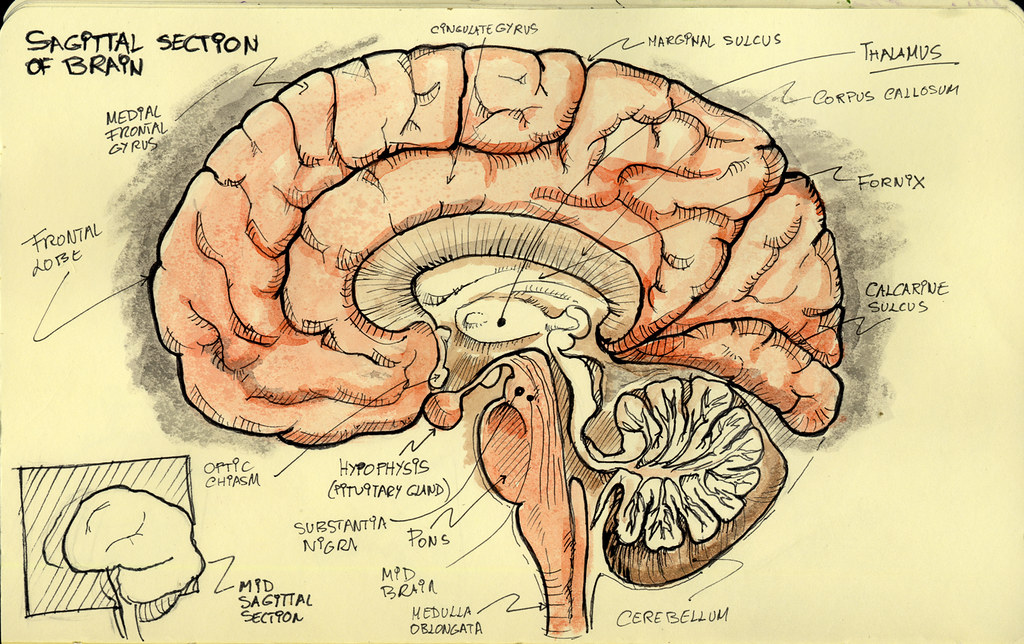 SAGITTAL SECTION
OF BRAIN
CINGULATE GYRUS
MARGINAL SULCUS
THALAMUS
CORPUS CALLOSUM
MEDIAL
FRONTAL
GYRUS
FORNIX
FRONTAL
LOBE
CALCARINE
SULCUS
OPTIC
CHIASM
HYPOPHYSIS
(PITUITARY GLAND)
SUBSTANTIA
NIGRA
PONS
MID
BRAIN
MEDULLA
OBLONGATA
CEREBELLUM
MID
SAGITTAL
SECTION